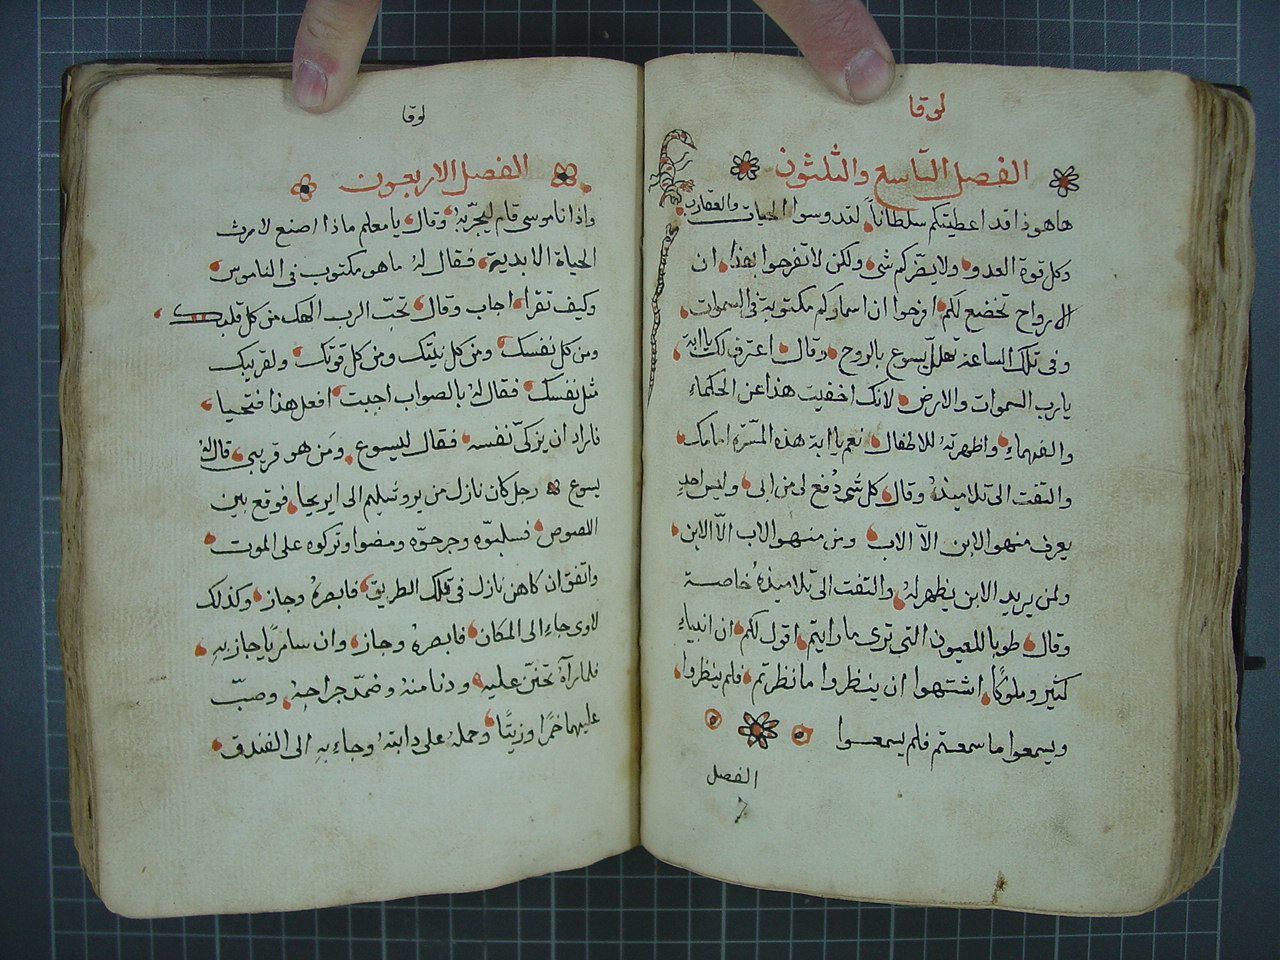 لوقا
الفصل التاسع والثلثون
هاهوذا قد اعطيتكم سلطاناً لتدوسوا الحيات والعقارب
وكل قوة العدو ولا يضركم شي ولكن لا تفرحوا بهذا ان
الارواح تخضع لكم افرحوا ان اسماوكم مكتوبة في السموات
وفي تلك الساعة تهلل يسوع بالروح وقال اعترف لك يا ابة
يارب السموات والارض لانك اخفيت هذا عن الحكماء
والفهماء واظهرته للاطفال نعم يا ابة هذه المسرة امامك
والتفت الى تلاميذه وقال كل شي دُفع لي من ابي وليس احد
يعرف من هو الابن الاّ الاب ومن هو الاب الاّ الابن
ولمن يريد الابن يظهر له والتفت الى تلاميذه خاصة
وقال طوبا للعيون التي ترى ما رايتم اقول لكم ان انبياء
كثير وملوكًا اشتهوا ان ينظروا ما نظرتم فلم ينظروا
ويسمعوا ما سمعتم فلم يسمعوا
الفصل
لوقا
الفصل الاربعون
واذا ناموسي قام ليجرّبه وقال يا معلم ماذا اصنع لارث
الحياة الابدية فقال له ما هو مكتوب في الناموس
وكيف تقرا اجاب وقال تحبّ الرب الهك من كل قلبك
ومن كل نفسك ومن كل نيتك ومن كل قوتك ولقريبك
مثل نفسك فقال له بالصواب اجبت افعل هذا فتحيا
فاراد ان يزكّي نفسه فقال ليسوع ومَن هو قريبي قال له
يسوع رجل كان نازل من يروشليم الى ايريحا فوقع بين
اللصوص فسلبوّه وجرحوّه ومضوا وتركوه على الموت
واتفق ان كاهن نازل في تلك الطريق فابصرهُ وجاز وكذلك
لاوى جاء الى المكان فابصرهُ وجاز وان سامريًا جاز به
فلما رآهُ تحنّن عليه ودنا منهُ وضمّد جراحه وصبّ
عليهما خمرًا وزيتًا وحمله على دابته وجاء به الى الفندق